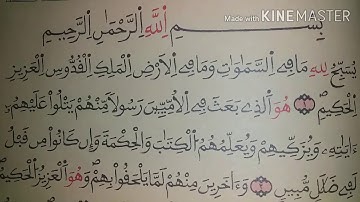 Made with KINEMASTER
بِسْمِ اِ۬للَّهِ اِ۬لرَّحْمَٰنِ اِ۬لرَّحِيمِ
يُسَبِّحُ لِلهِ مَا فِے اِ۬لسَّمَٰوَٰتِ وَمَا فِے اِ۬لْأَرْضِ اِ۬لْمَلِكِ اِ۬لْقُدُّوسِ اِ۬لْعَزِيزِ
اِ۬لْحَكِيمِۖ ١ هُوَ اَ۬لذِے بَعَثَ فِے اِ۬لْأُمِّيِّـۧنَ رَسُولاٗ مِّنْهُمْ يَتْلُواْ عَلَيْهِمُۥٓ
ءَايَٰتِهِۦ وَيُزَكِّيهِمْ وَيُعَلِّمُهُمُ اُ۬لْكِتَٰبَ وَالْحِكْمَةَ وَإِن كَانُواْ مِن قَبْلُ
لَفِے ضَلَٰلٖ مُّبِينٖ ٢ وَءَاخَرِينَ مِنْهُمْ لَمَّا يَلْحَقُواْ بِهِمْۖ وَهُوَ اَ۬لْعَزِيزُ اُ۬لْحَكِيمُۖ